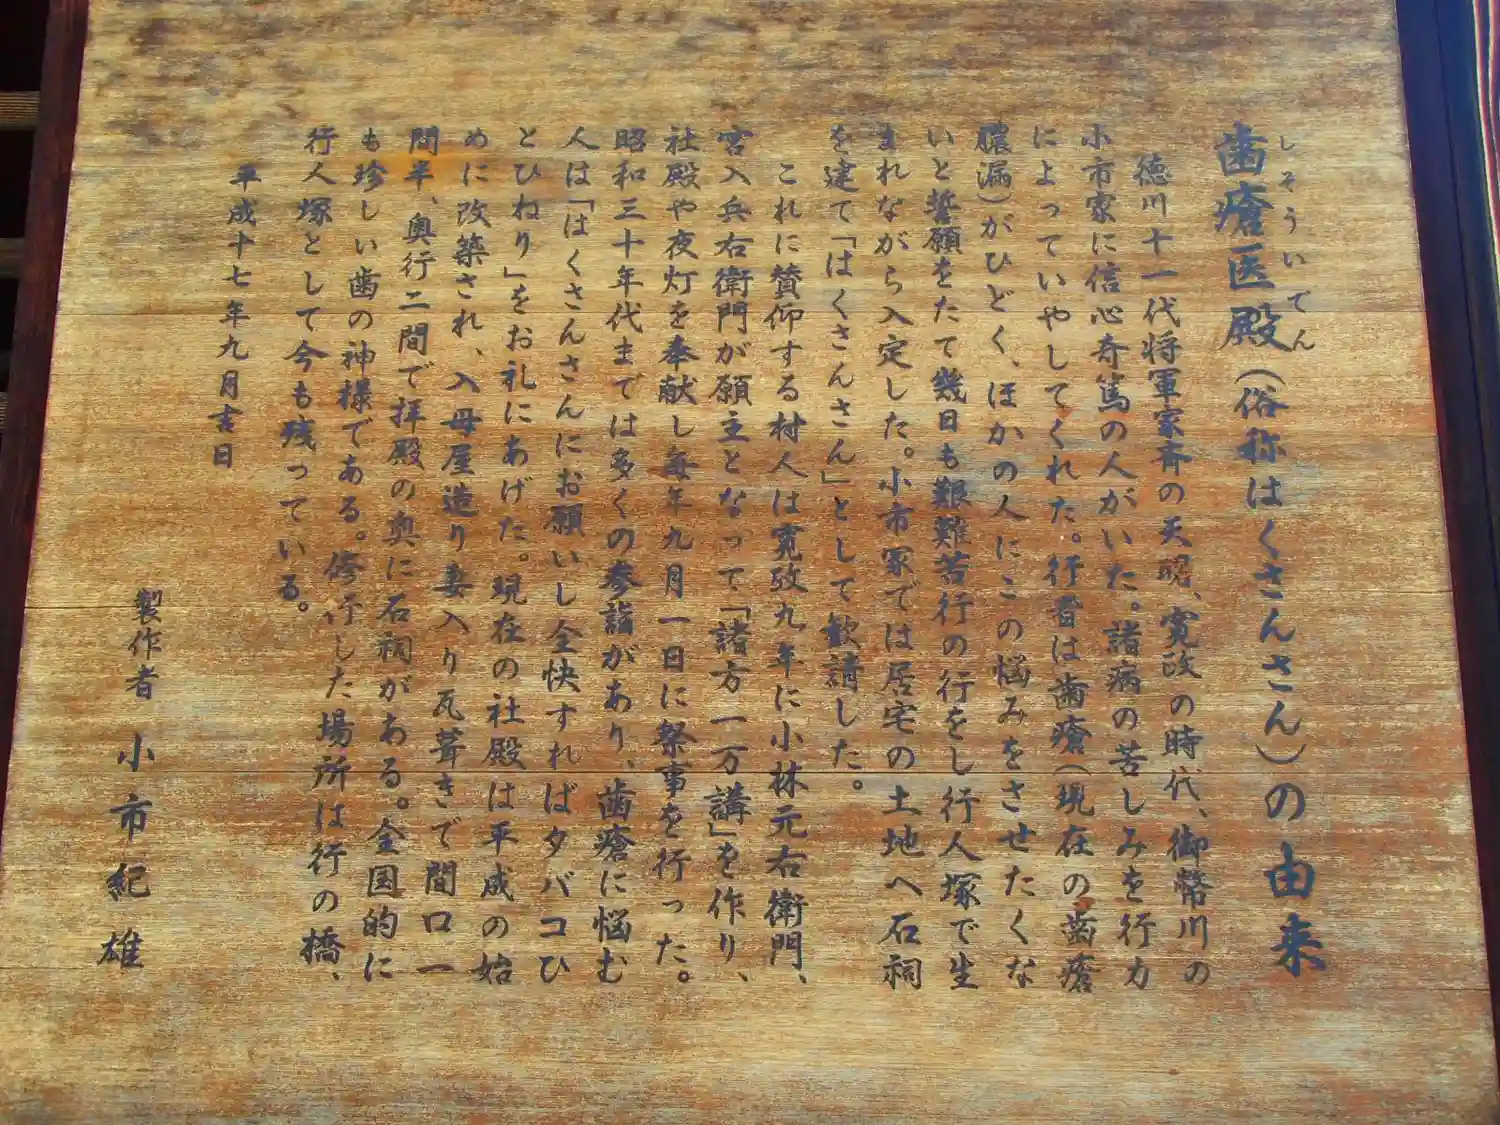 しそういでん
歯瘡医殿(俗称はくさんさん)の由来
徳川十一代将軍家斉の天明、寛政の時代、御幣川の
小市家に信心奇篤の人がいた。諸病の苦しみを行力
によっていやしてくれた。行者は歯瘡(現在の歯瘡
膿漏)がひどく、ほかの人にこの悩みをさせたくな
いと誓願をたて幾日も艱難苦行の行をし行人塚で生
まれながら入定した。小市家では居宅の土地へ石祠
を建て「はくさんさん」として歓請した。
これに賛仰する村人は寛政九年に小林元右衛門、
宮入兵右衛門が願主となって「諸方一万講」を作り、
社殿や夜灯を奉献し毎年九月一日に祭事を行った。
昭和三十年代までは多くの参詣があり、歯瘡に悩む
人は「はくさんさんにお願いし全快すればタバコひ
とひねり」をお礼にあげた。現在の社殿は平成の始
めに改築され、入母屋造り妻入り瓦葺きで間口一
間半、奥行二間で拝殿の奥に石祠がある。全国的に
も珍しい歯の神様である。修行した場所は行の橋、
行人塚として今も残っている。
平成十七年九月吉日
製作者 小市紀雄